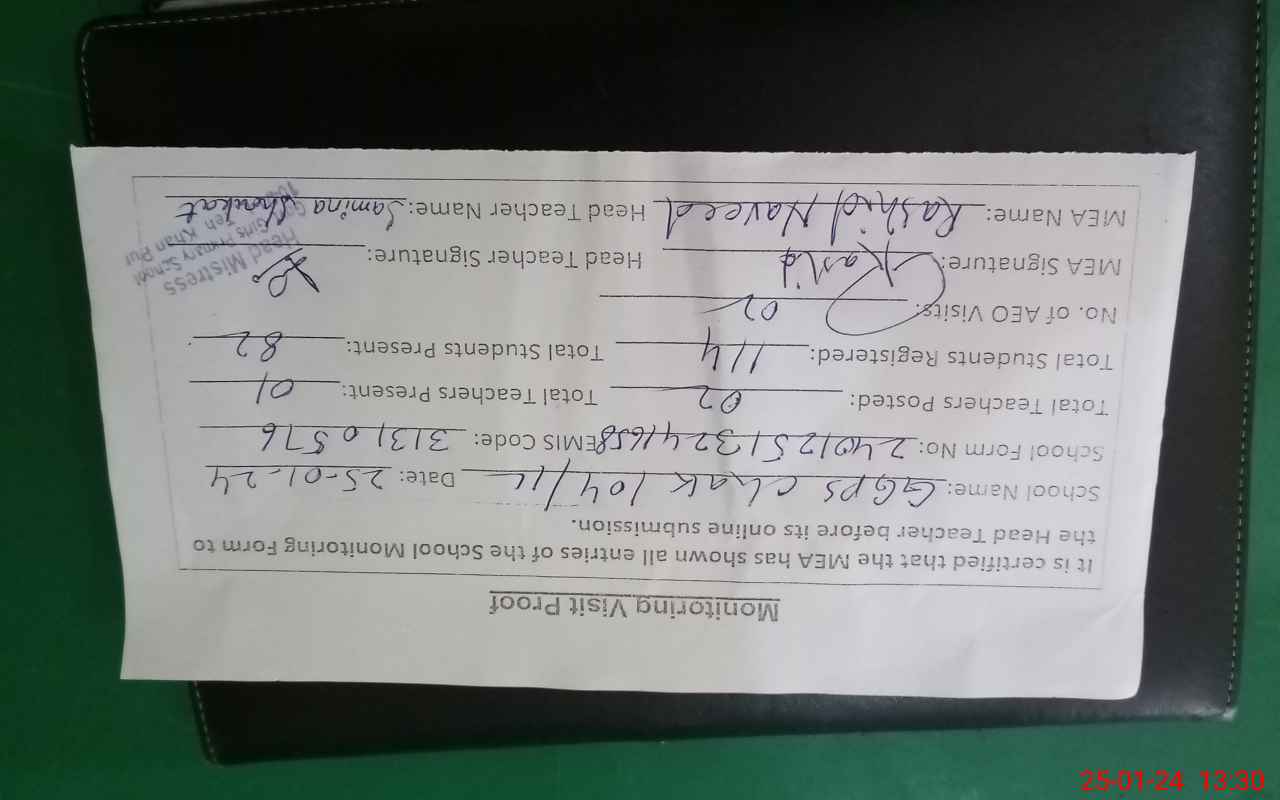 Monitoring Visit Proof
It is certified that the MEA has shown all entries of the School Monitoring Form to
the Head Teacher before its online submission.
School Name: GGPS chak 104/1L Date: 25-01-24
School Form No: 24012513241658 EMIS Code: 31310576
Total Teachers Posted: 02 Total Teachers Present: 01
Total Students Registered: 114 Total Students Present: 82
No. of AEO Visits: 02
MEA Signature: Rashid Head Teacher Signature:
MEA Name: Rashid Naveed Head Teacher Name: Samina Shoukat
Head Mistress
Girls Primary School
Teh Khan Pur
25-01-24 13:30